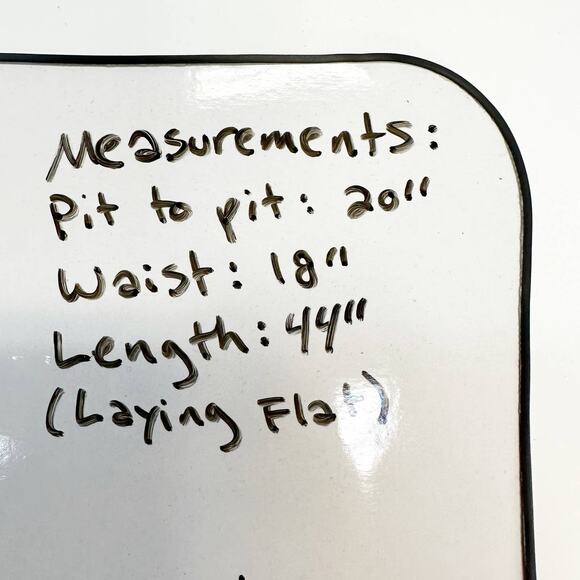 Measurements:
Pit to pit: 20"
Waist: 18"
Length: 44"
(Laying Flat)